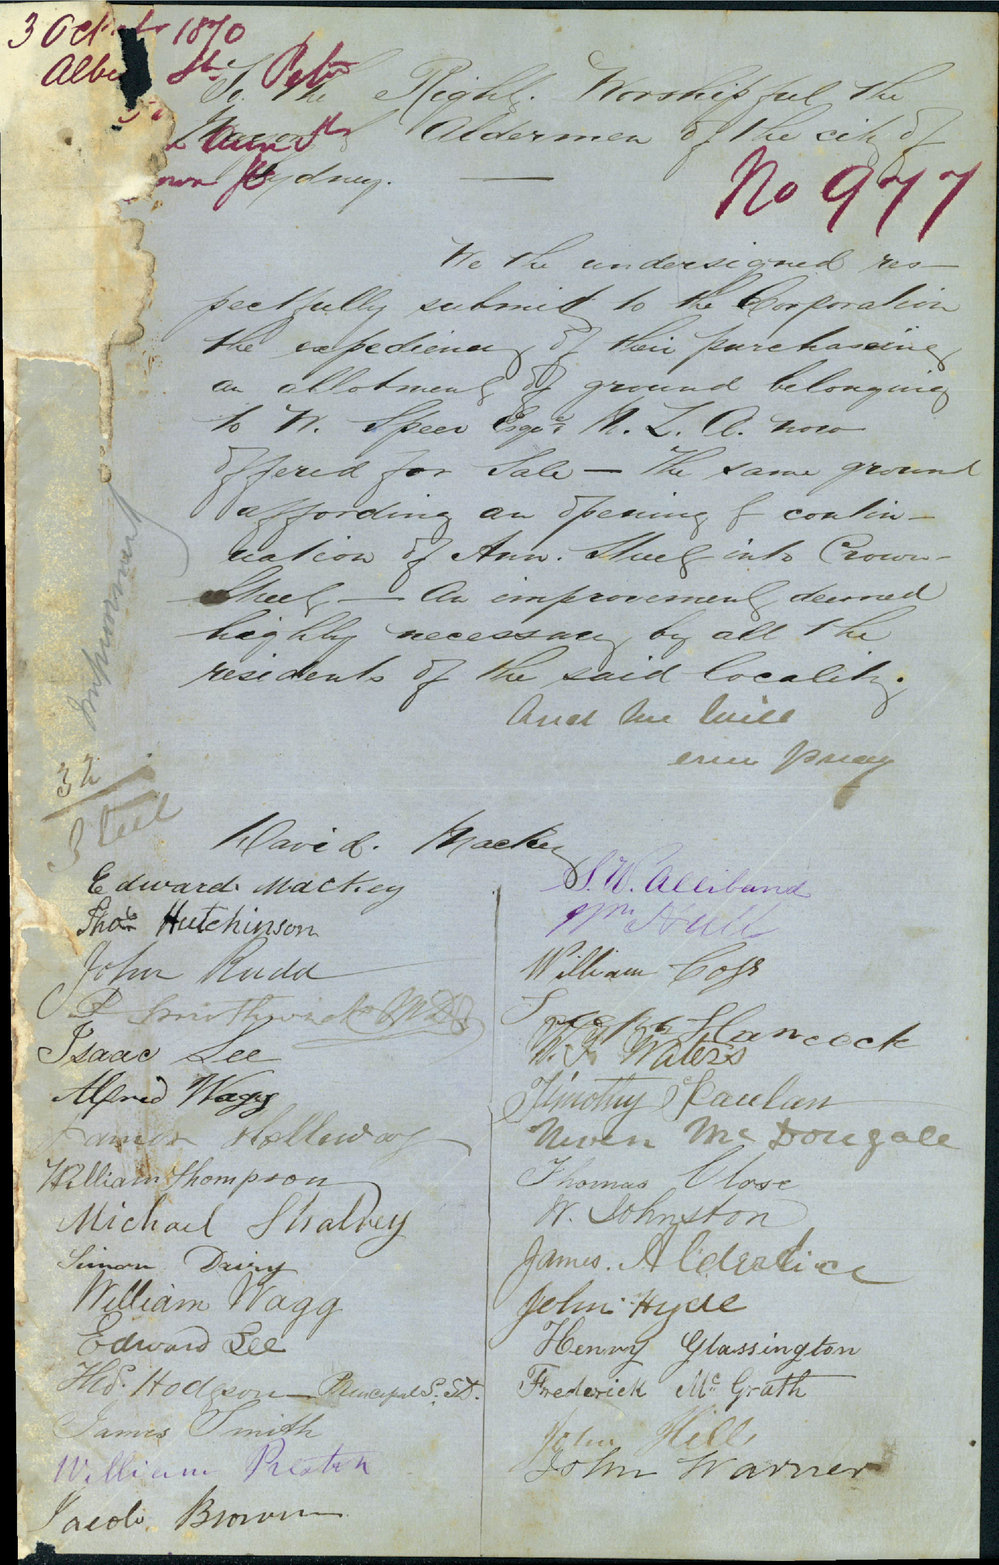 3 Oct 1870
Albe St. Petn
To. The Right. Worshipful the
Mayor Aldermen of the city of
Ann St
own St Sydney. —
No 977
We the undersigned res-
pectfully submit to the Corporation
the expediency of their purchasing
an allotment of ground belonging
to W. Speer Esqr M. L. A. now
offered for Sale — The same ground
affording an opening & contin-
uation of Ann. Street into Crown-
Street — An improvement deemed
highly necessary by all the
residents of the said locality.
And we will
ever pray
32
David. Mackey
Edward Mackey
Thos Hutchinson
John Rudd
Isaac Lee
Alfred Wagg
James Holloway
William Thompson
Michael Shalvey
Simon Dairy
William Wagg
Edward Lee
Hodgson — Principal S. St.
James Smith
William Preston
Jacob. Brown
S. W. Alliband
Wm Hull
William Coss
Hancock
W. F. Waters
Timothy
Neven McDougall
Thomas Close
W. Johnston
James. Alderdice
John Hyde
Henry Glassington
Frederick Mc Grath
John Hill
John Warner